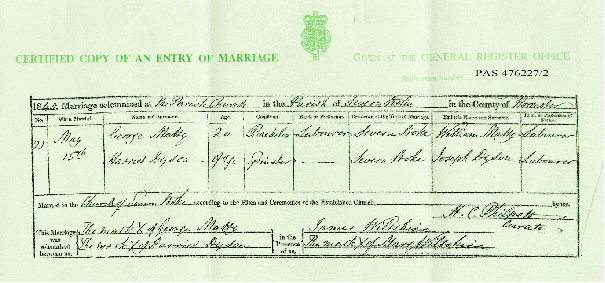 CERTIFIED COPY OF AN ENTRY OF MARRIAGE
GIVEN AT THE GENERAL REGISTER OFFICE
Application Number
PAS 476227/2
Marriage solemnized at the Parish Church in the Parish of Severn Stoke in the County of Worcester
No. When Married. Name and Surname. Age Condition Rank or Profession. Residence at the Time of Marriage. Father's Name and Surname. Rank or Profession of Father.
21 May 15th George 20 Bachelor Labourer Severn Stoke William Labourer
Harriet Dyson Spinster Severn Stoke Joseph Dyson Labourer
Married in the Church of Severn Stoke according to the Rites and Ceremonies of the Established Church by me,
Curate
This Marriage was solemnized between us,
The mark X of George
The mark X of Harriet Dyson
in the Presence of us,
James
The mark X of Mary